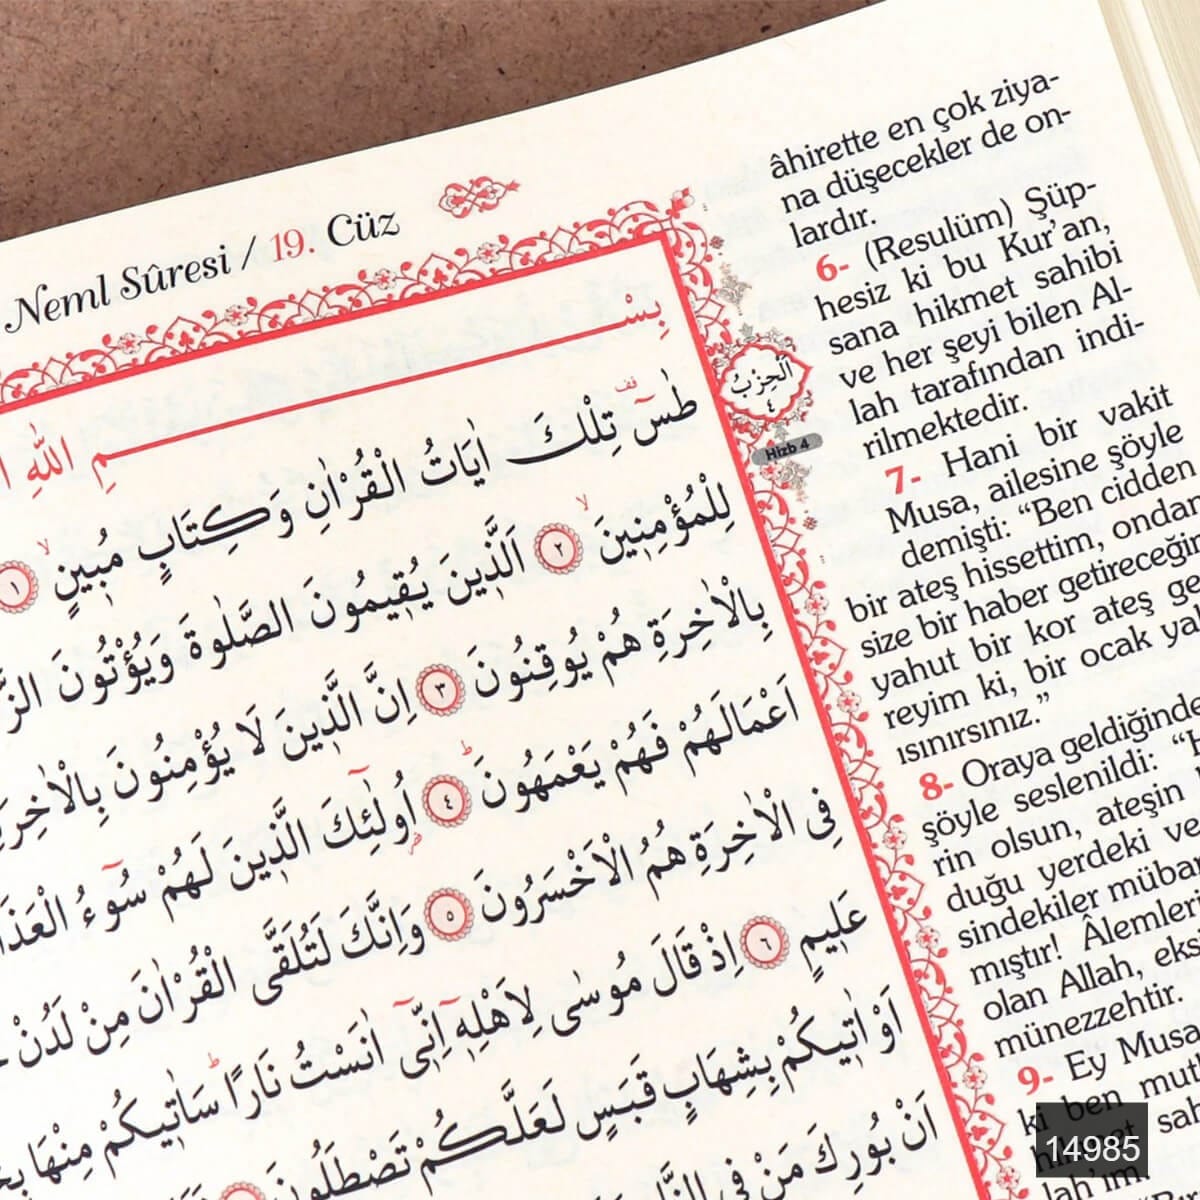 Neml Sûresi / 19. Cüz
بِسْمِ اللّٰهِ
طٰسٓ تِلْكَ اٰيَاتُ الْقُرْاٰنِ وَكِتَابٍ مُبٖينٍ ١
لِلْمُؤْمِنٖينَ ٢ اَلَّذٖينَ يُقٖيمُونَ الصَّلٰوةَ وَيُؤْتُونَ
بِالْاٰخِرَةِ هُمْ يُوقِنُونَ ٣ اِنَّ الَّذٖينَ لَا يُؤْمِنُونَ بِالْاٰخِرَةِ
اَعْمَالَهُمْ فَهُمْ يَعْمَهُونَ ٤ اُولٰٓئِكَ الَّذٖينَ لَهُمْ سُٓوءُ
فِى الْاٰخِرَةِ هُمُ الْاَخْسَرُونَ ٥ وَاِنَّكَ لَتُلَقَّى الْقُرْاٰنَ مِنْ لَدُنْ
عَلٖيمٍ ٦ اِذْ قَالَ مُوسٰى لِاَهْلِهٖٓ اِنّٖٓى اٰنَسْتُ نَارًا سَاٰتٖيكُمْ مِنْهَا
اَوْ اٰتٖيكُمْ بِشِهَابٍ قَبَسٍ لَعَلَّكُمْ تَصْطَلُونَ
اَنْ بُورِكَ مَنْ فِى
اَلْحِزْبُ
٤
Hizb 4
âhirette en çok ziya-
na düşecekler de on-
lardır.
6- (Resulüm) Şüp-
hesiz ki bu Kur’an,
sana hikmet sahibi
ve her şeyi bilen Al-
lah tarafından indi-
rilmektedir.
7- Hani bir vakit
Musa, ailesine şöyle
demişti: “Ben cidden
bir ateş hissettim, ondan
size bir haber getireceğim
yahut bir kor ateş
reyim ki, bir ocak
ısınırsınız.”
8- Oraya geldiğinde
şöyle seslenildi:
rin olsun, ateşin
duğu yerdeki ve
sindekiler
mıştır! Âlemleri
olan Allah,
münezzehtir.
9- Ey Musa
ki ben
lah’ım.
14985